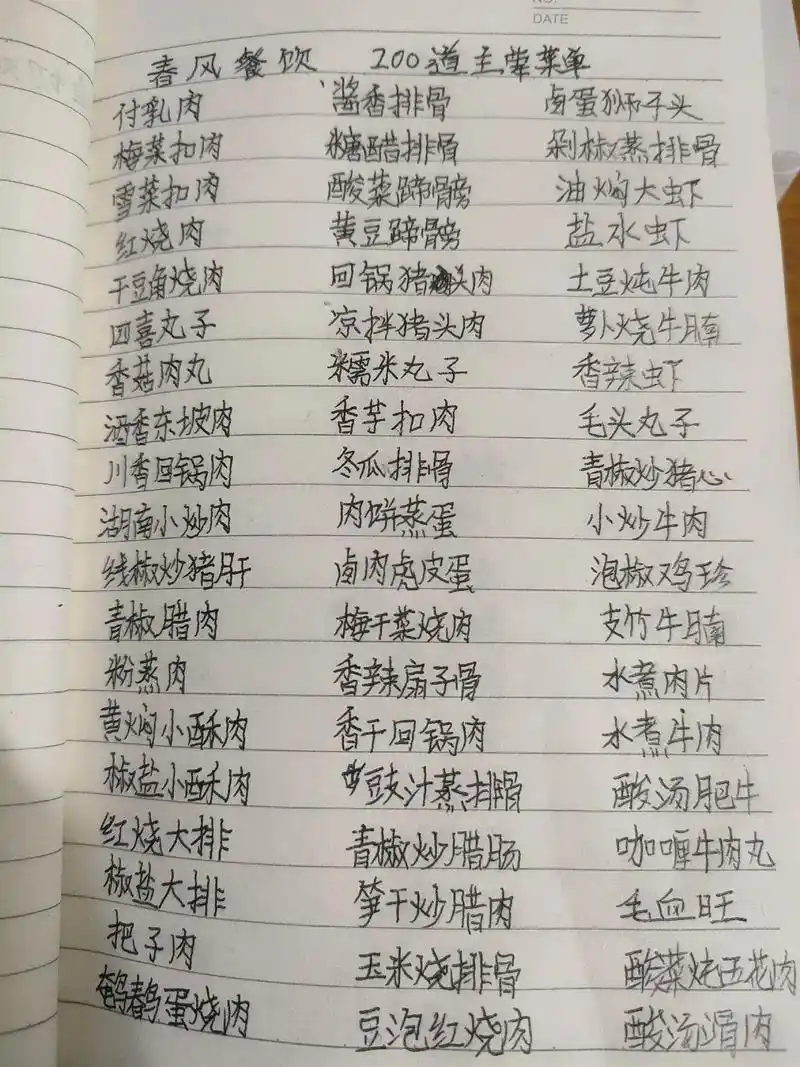 NO.
DATE
春风餐饮 200道主荤菜单
付乳肉 酱香排骨 卤蛋狮子头
梅菜扣肉 糖醋排骨 剁椒蒸排骨
雪菜扣肉 酸菜蹄髈 油焖大虾
红烧肉 黄豆蹄髈 盐水虾
干豆角烧肉 回锅猪头肉 土豆炖牛肉
四喜丸子 凉拌猪头肉 萝卜烧牛腩
香菇肉丸 糯米丸子 香辣虾
酒香东坡肉 香芋扣肉 毛头丸子
川香回锅肉 冬瓜排骨 青椒炒猪心
湖南小炒肉 肉饼蒸蛋 小炒牛肉
线椒炒猪肝 卤肉虎皮蛋 泡椒鸡珍
青椒腊肉 梅干菜烧肉 支竹牛腩
粉蒸肉 香辣扇子骨 水煮肉片
黄焖小酥肉 香干回锅肉 水煮牛肉
椒盐小酥肉 豆豉汁蒸排骨 酸汤肥牛
红烧大排 青椒炒腊肠 咖喱牛肉丸
椒盐大排 笋干炒腊肉 毛血旺
把子肉 玉米烧排骨 酸菜炖五花肉
鹌鹑蛋烧肉 豆泡红烧肉 酸汤滑肉